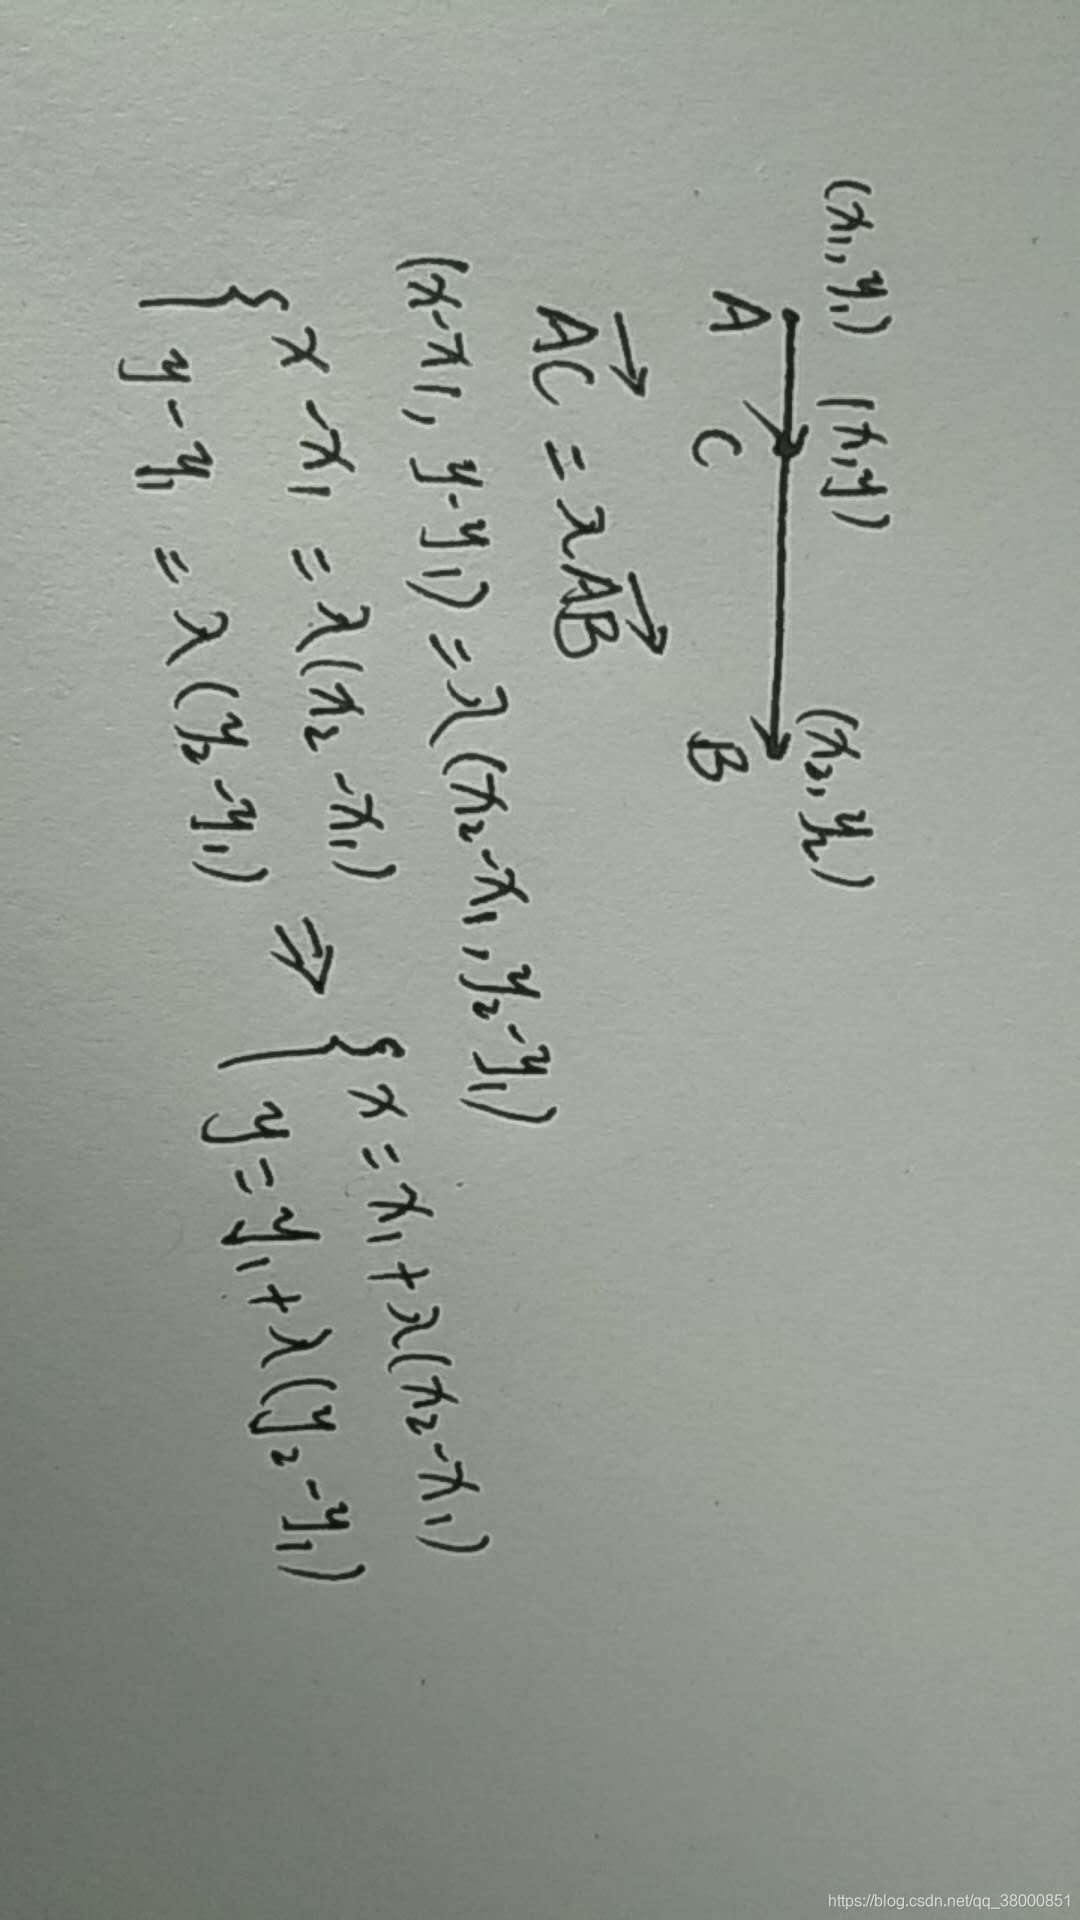 (x₁, y₁) (x, y) (x₂, y₂)
A C B
AC = λAB
(x-x₁, y-y₁) = λ(x₂-x₁, y₂-y₁)
{ x - x₁ = λ(x₂ - x₁) ⇒ { x = x₁ + λ(x₂ - x₁)
y - y₁ = λ(y₂ - y₁) y = y₁ + λ(y₂ - y₁)
https://blog.csdn.net/qq_38000851